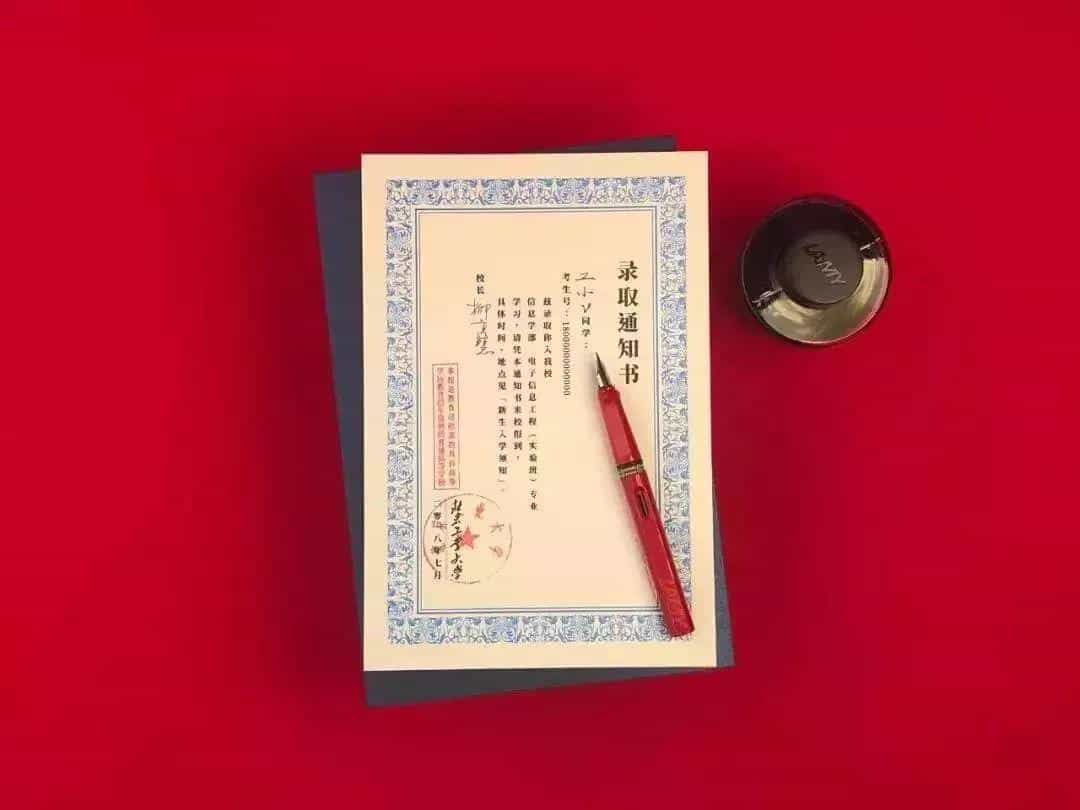 录取通知书
王小工同学：
考生号：18000000000000
兹录取你入我校
信息学部 电子信息工程（实验班）专业
学习，请凭本通知书来校报到，
具体时间、地点见「新生入学须知」。
校长 柳贡慧
北京工业大学
二零一八年七月
LAMY